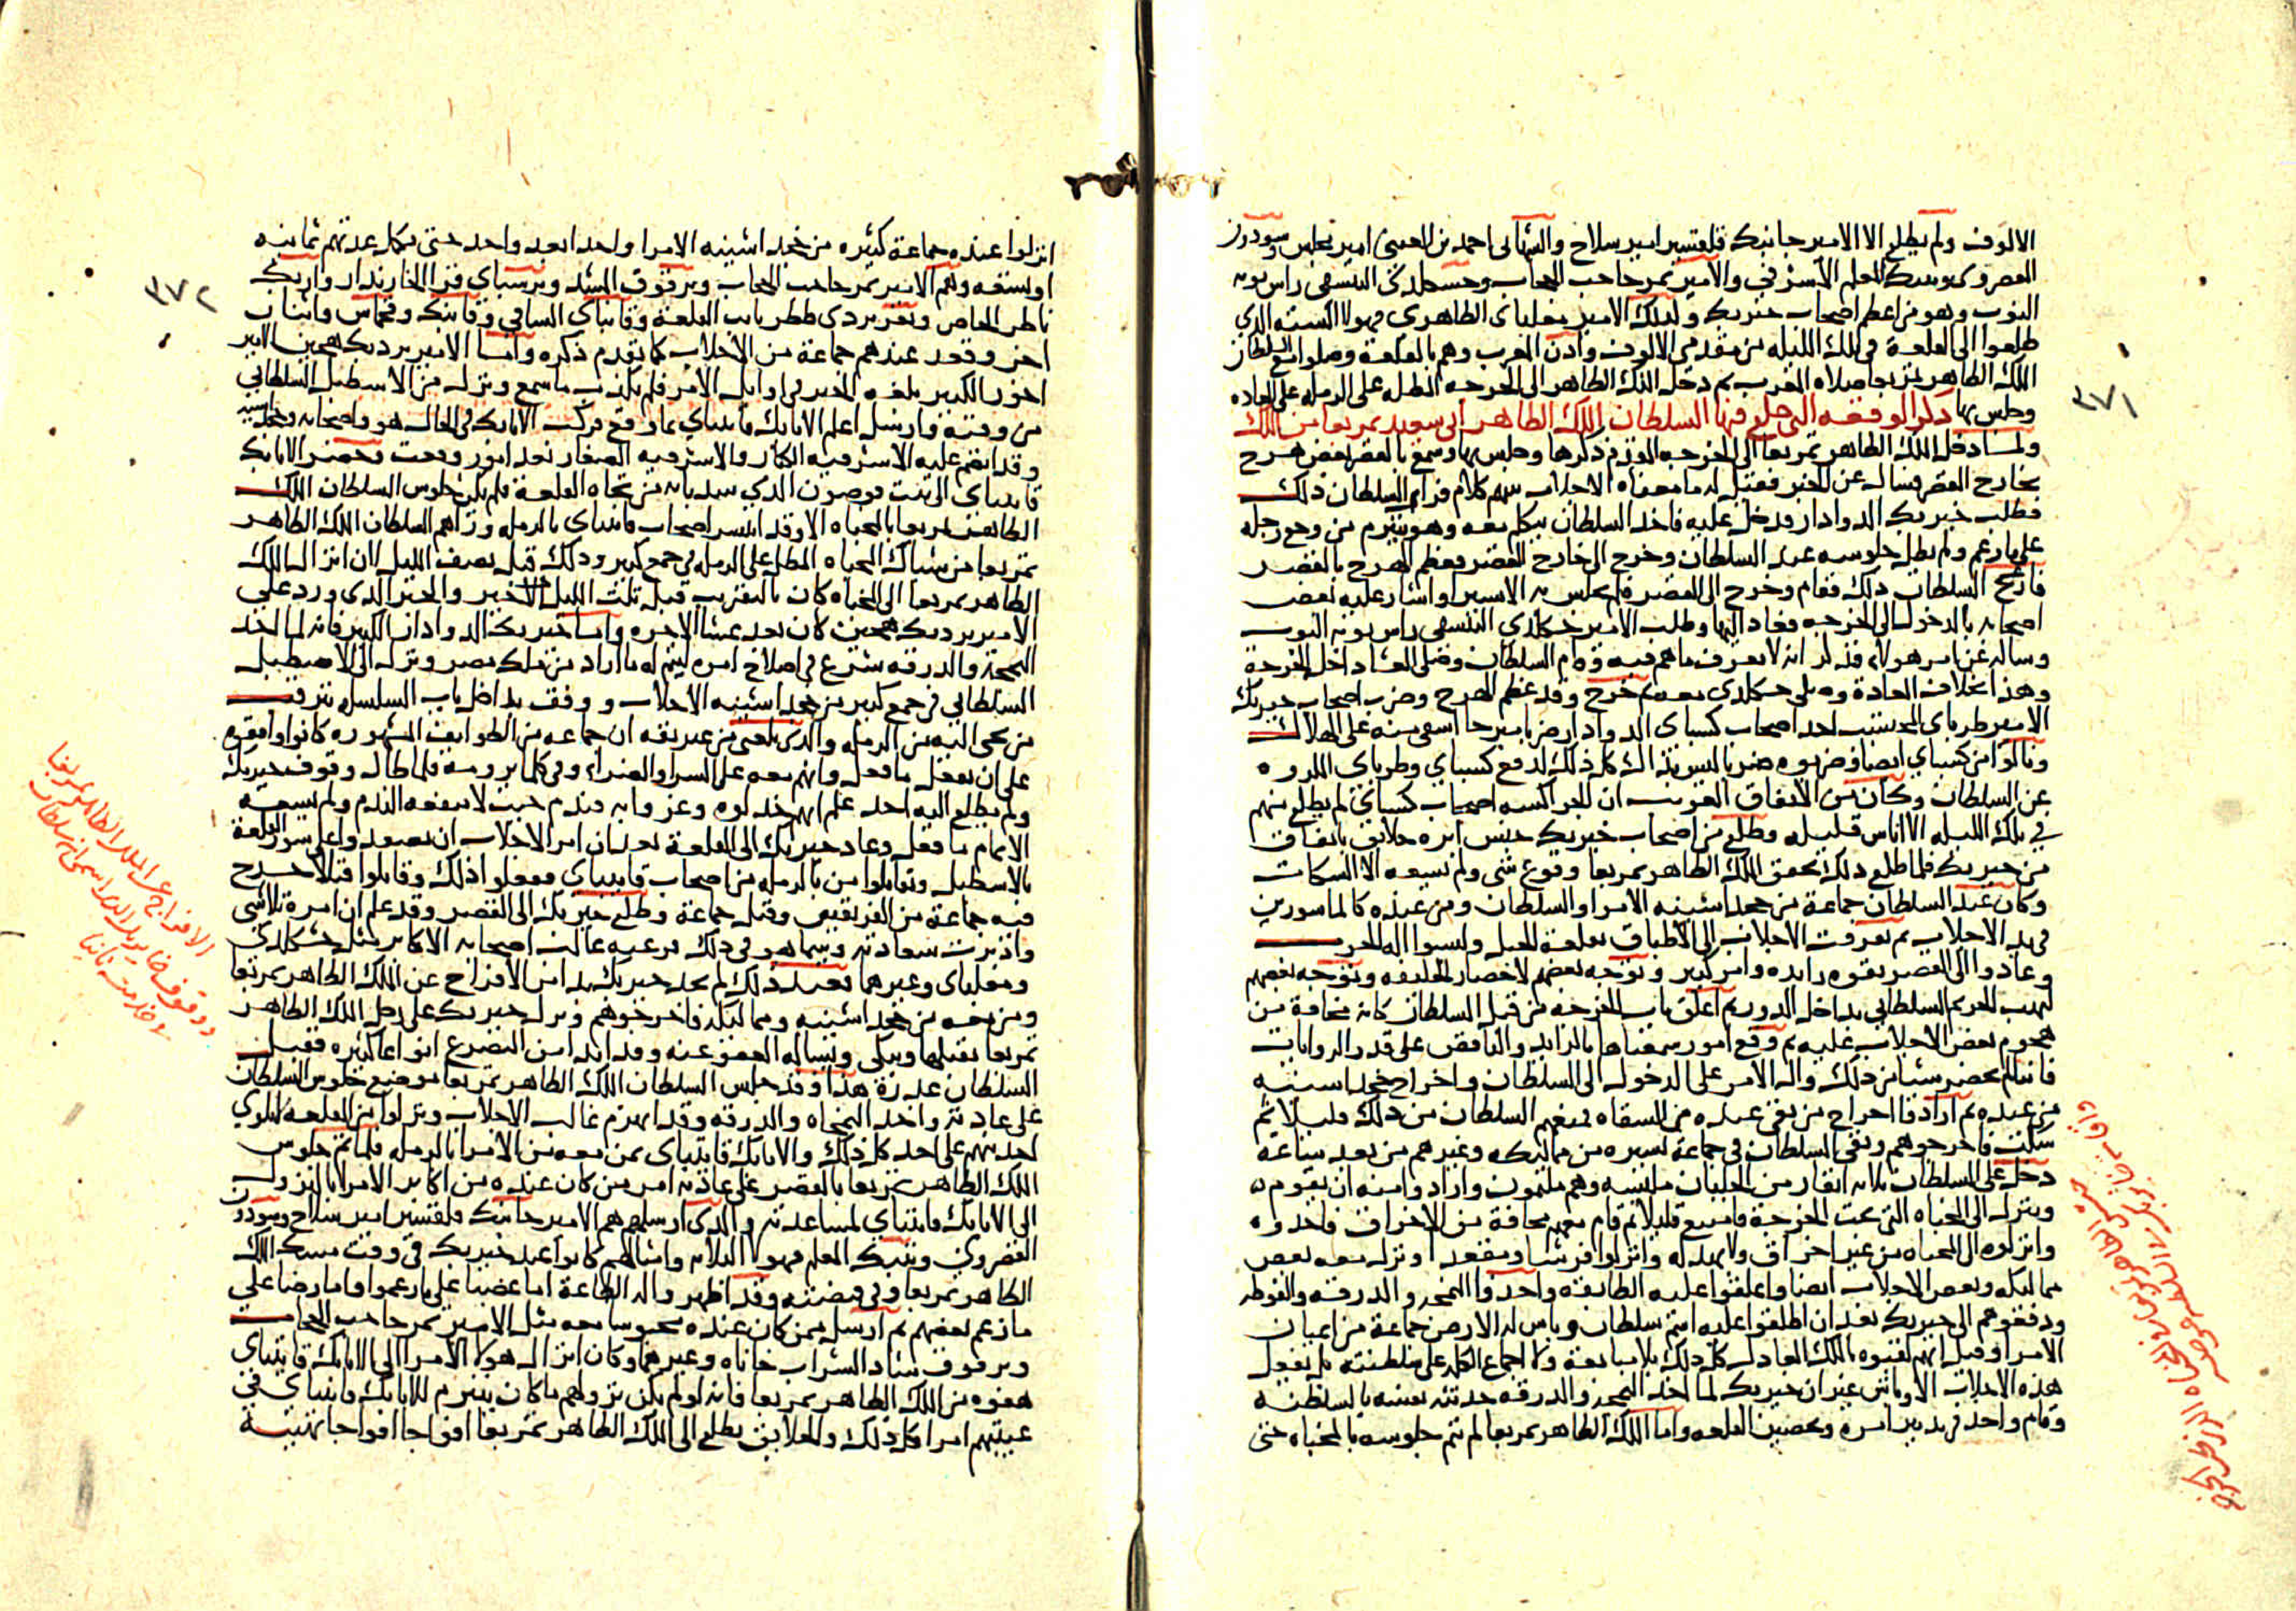 الالوف ولم يطلع الا الامير جانبك قلقسير امير سلاح والشهابى احمد بن العينى امير مجلس وسودون
القصروى وتنبك المعلم الاشرفى والامير تمر حاجب الحجاب وخشكلدى البيسقى راس نوبه
النوب وهو من اعظم اصحاب خيربك وكذلك الامير مغلباى الظاهرى فهولا السته الذى
طلعوا الى القلعة فى تلك الليله من مقدمى الالوف واذن المغرب وهم بالقلعة وصلوا مع السلطان
الملك الظاهر تمربغا صلاه المغرب ثم دخل الملك الظاهر الى الخرجه المطله على الرمله على العاده
وجلس بها ذكر الوقعه التى خلع فيها السلطان الملك الظاهر ابى سعيد تمربغا من الملك
ولما دخل الملك الظاهر تمربغا الى الخرجه المقدم ذكرها وجلس بها وسمع بالقصر بعض هرج
بخارج القصر فسال عن الخبر فقيل له ما معناه الاجلاب بينهم كلام فرام السلطان ذلك
فطلب خيربك الدوادار فدخل عليه فاخذ السلطان يتكلم معه وهو يتبرم من وجع رجله
على ما زعم ولم يطل جلوسه عند السلطان وخرج الى خارج القصر فعظم الهرج بالقصر
فازعج السلطان ذلك فقام وخرج الى القصر فلم يجلس به الا يسيرا واشار عليه بعض
اصحابه بالدخول الى الخرجه فعاد اليها وطلب الامير خشكلدى البيسقى راس نوبه النوب
وساله عن امر هولاء فذكر انه لا يعرف ما هم فيه وقام السلطان وصلى العشا داخل الخرجة
وهذا بخلاف العادة وصلى خشكلدى معه ثم خرج وقد عظم الهرج وضرب اصحاب خيربك
الامير طرباى المحتسب احد اصحاب كسباى الدوادار ضربا مبرحا اشفى منه على الهلاك
ونالوا من كسباى ايضا وضربوه ضربا ليس بذاك كل ذلك لدفع كسباى وطرباى المذكور
عن السلطان وكان من الاتفاق الغريب ان الجراكسه اصحاب كسباى لم يطلع منهم
فى تلك الليله الا اناس قليله وطلع من اصحاب خيربك خلايق باتفاق
من خيربك فلما طلع ذلك تحقق الملك الظاهر تمربغا وقوع شى ولم يسعه الا السكات
وكان عند السلطان جماعة من خجداشينه الامرا والسلطان ومن عنده كالماسورين
فى يد الاجلاب ثم تفرقت الاجلاب الى الاطباق بقلعة الجبل ولبسوا اله الحرب
وعادوا الى القصر بقوه زايده وامر كبير وتوجه بعضهم لاحضار الخليفه وتوجه بعضهم
لنهب الحريم السلطانى بداخل الدور ثم اغلق باب الخرجه من قبل السلطان كانه مخافة من
هجوم بعض الاجلاب عليه ثم وقع امور سمعناها بالزايد والناقص على قدر الروايات
فاننا لم نحضر شيا من ذلك وال الامر على الدخول الى السلطان واخراج خجداشينه
من عنده ثم ارادوا اخراج من بقى عنده من السقاه فمنعهم السلطان من ذلك قليلا ثم
سكت فاخرجوهم وبقى السلطان فى جماعة يسيره من مماليكه وغيرهم من بعد ساعة
دخل على السلطان ثلاثه انفار من الجلبان ملبسه وهم ملثمون وارادوا منه ان يقوم
وينزل الى المخباه التى تحت الخرجة فامتنع قليلا ثم قام معهم مخافة من الاخراق فاخذوه
وانزلوه الى المخباه من غير اخراق ولا بهدله وانزلوا فرشا ومقعدا ونزل معه بعض
مماليكه وبعض الاجلاب ايضا واغلقوا عليه الطابقه واخذوا النمجه والدرقه والفوطه
ودفعوهم الى خيربك بعد ان اطلقوا عليه اسم سلطان وباس له الارض جماعة من اعيان
الامرا وقيل انهم لقبوه بالملك العادل كل ذلك بلا مبايعة ولا اجماع الكل على سلطنته بل بفعل
هذه الاجلاب الاوباش غير ان خيربك لما اخذ النمجه والدرقه حدثته نفسه بالسلطنه
وقام واخذ فى تدبير امره وتحصين القلعه واما الملك الظاهر تمربغا لم يتم جلوسه بالمخباه حتى
٣٧١
انزلوا عنده جماعة كثيره من خجداشينه الامرا واحدا بعد واحد حتى تكمل عدتهم ثمانيه
او تسعه وهم الامير تمر حاجب الحجاب وبرقوق المشد وبرسباى قرا الخازندار وازبك
ناظر الخاص وتغرى بردى ططر نايب القلعة وقانباى الساقى وقانبك وقجماس واثنان
اخر وقعد عندهم جماعة من الاجلاب كما تقدم ذكره واما الامير بردبك هجين الامير
اخور الكبير بلغه الخبر فى اوايل الامر فلم يكذب ما سمع ونزل من الاسطبل السلطانى
من وقته وارسل اعلم الاتابك قايتباى بما وقع فركب الاتابك فى الحال هو واصحابه وخجداشيه
وقد انضم عليه الاشرفيه الكبار والاشرفيه الصغار بعد امور وقعت وحضر الاتابك
قايتباى الى بيت قوصون الذى سد بابه من تجاه القلعة فلم يكن جلوس السلطان الملك
الظاهر تمربغا بالمخباه الا وقد انتشر اصحاب قايتباى بالرمله وراهم السلطان الملك الظاهر
تمربغا من شباك المخباه المطل على الرمله فى جمع كبير وذلك قبل نصف الليل لان انزال الملك
الظاهر تمربغا الى المخباه كان بالتقريب قبل ثلث الليل الاخير والخبر الذى ورد على
الامير بردبك هجين كان بعد عشا الاخره واما خيربك الدوادار الكبير فانه لما اخذ
النمجة والدرقه شرع فى اصلاح امره ليتم له ما اراد من ملك مصر ونزل الى الاسطبل
السلطانى فى جمع كبير من خجداشينه الاجلاب ووقف بداخل باب السلسله يترقب
من يجى اليه من الرمله والذى بلغنى من غير ثقه ان جماعه من الطوايف المشهوره كانوا وافقوه
على ان يفعل ما فعل وانهم معه على السرا والضراء وفى كلما يرومه فلما طال وقوف خيربك
ولم يطلع اليه احد علم انهم خذلوه وغروا به فندم حيث لا ينفعه الندم ولم يسعه
الا تمام ما فعل وعاد خيربك الى القلعة بعد ان امر الاجلاب ان يصعدوا على سور القلعة
بالاسطبل وتقاتلوا من بالرمله من اصحاب قايتباى ففعلوا ذلك وقاتلوا قتالا جرح
فيه جماعة من الفريقين وقتل جماعة وطلع خيربك الى القصر وقد علم ان امره تلاشى
وادبرت سعادته وبينما هو فى ذلك فر عنه غالب اصحابه الاكابر مثل خشكلدى
ومغلباى وغيرهما فعند ذلك لم يجد خيربك بدا من الافراج عن الملك الظاهر تمربغا
ومن معه من خجداشينه ومماليكه فاخرجوهم ونزل خيربك على رجل الملك الظاهر
تمربغا يقبلها ويبكى ويساله العفو عنه وقد ابدا من التضرع انواعا كثيره فقبل
السلطان عذره هذا وقد جلس السلطان الملك الظاهر تمربغا موضع جلوس السلطان
على عادته واخذ النمجاه والدرقه وقد انهزم غالب الاجلاب ونزلوا من القلعه لا يلوى
احد منهم على احد كل ذلك والاتابك قايتباى بمن معه من الامرا بالرمله فلما تم جلوس
الملك الظاهر تمربغا بالقصر على عادته امر من كان عنده من اكابر الامرا بالنزول
الى الاتابك قايتباى لمساعدته والذى ارسلهم هم الامير جانبك قلقسير امير سلاح وسودون
القصروى وتنبك المعلم فهولا الثلاثه وامثالهم كانوا عند خيربك فى وقت مسك الملك
الظاهر تمربغا وفى قبضته وقد اظهروا له الطاعة اما غصبا على ما زعموا واما رضا على
ما زعم بعضهم ثم ارسل بمن كان عنده محبوسا معه مثل الامير تمر حاجب الحجاب
وبرقوق شاد الشراب خاناه وغيرهما وكان انزال هولاء الامرا الى الاتابك قايتباى
هفوه من الملك الظاهر تمربغا فانه لو لم يكن نزولهم ما كان ينبرم للاتابك قايتباى فى
غيبتهم امرا وكل ذلك والخلايق تطلع الى الملك الظاهر تمربغا افواجا افواجا تهنيه
٣٧٢